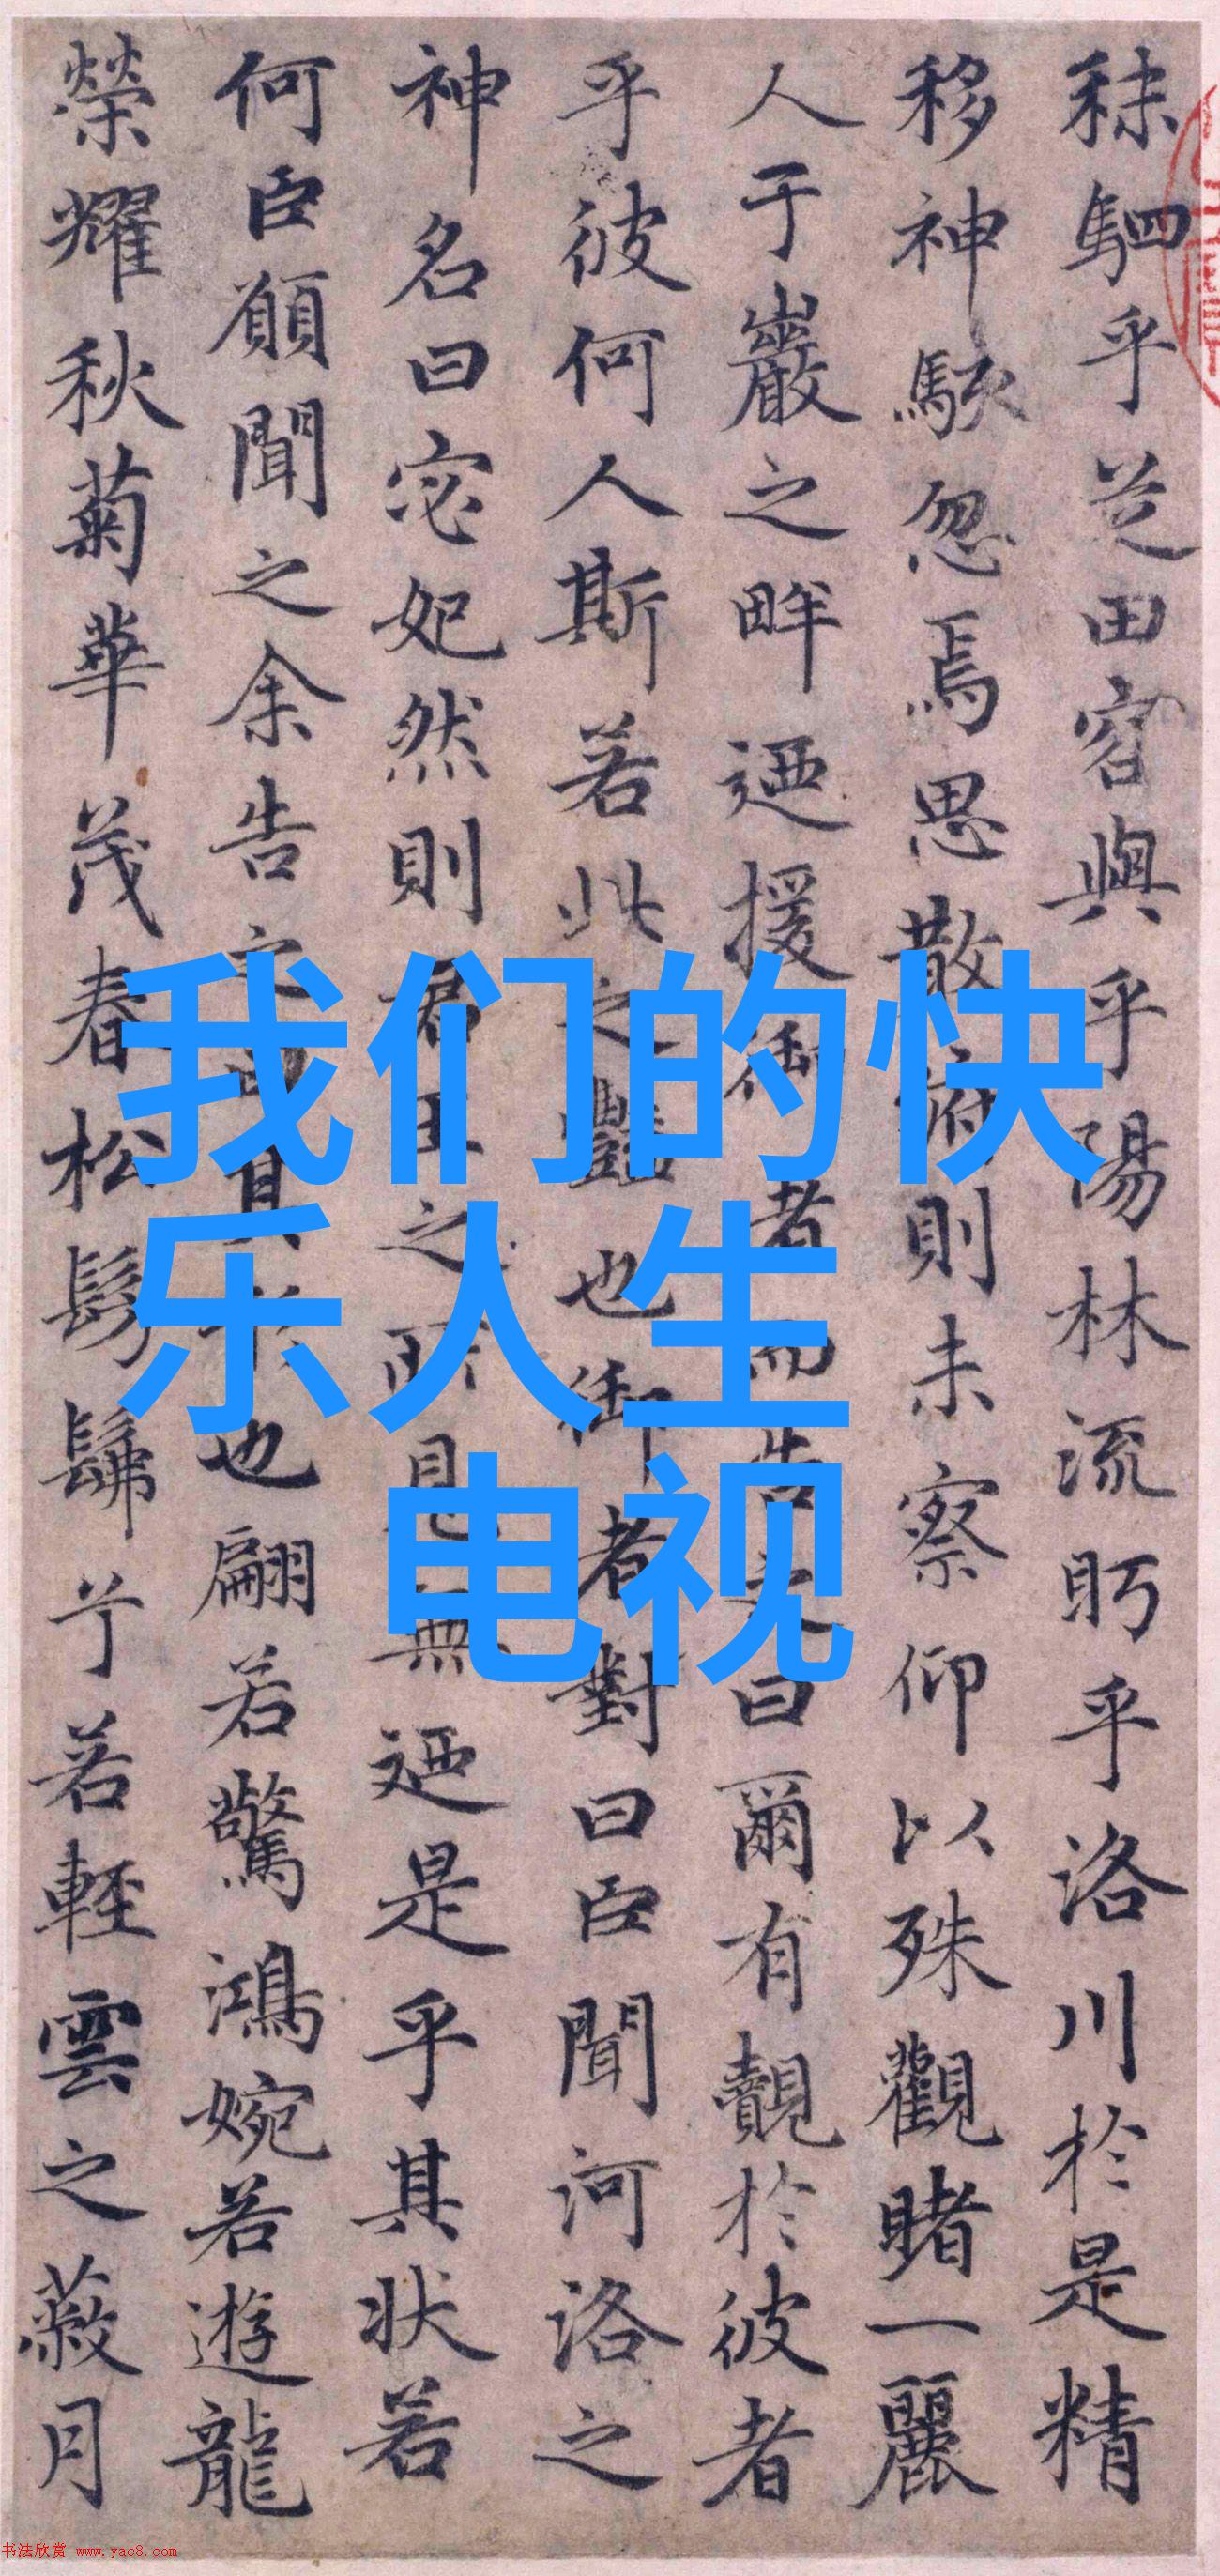 秣駟乎芝田容與乎陽林流眄乎洛川於是精
移神駭忽焉思散俯則未察仰以殊觀睹一麗
人于巖之畔迺援御者而告之曰爾有覿於彼者
乎彼何人斯若此之豔也御者對曰臣聞河洛之
神名曰宓妃然則君王之所見無迺是乎其狀若
何臣願聞之余告之曰其形也翩若驚鴻婉若遊龍
榮耀秋菊華茂春松髣髴兮若輕雲之蔽月
我们的快
乐人生
电视
书法欣赏 www.yac8.com